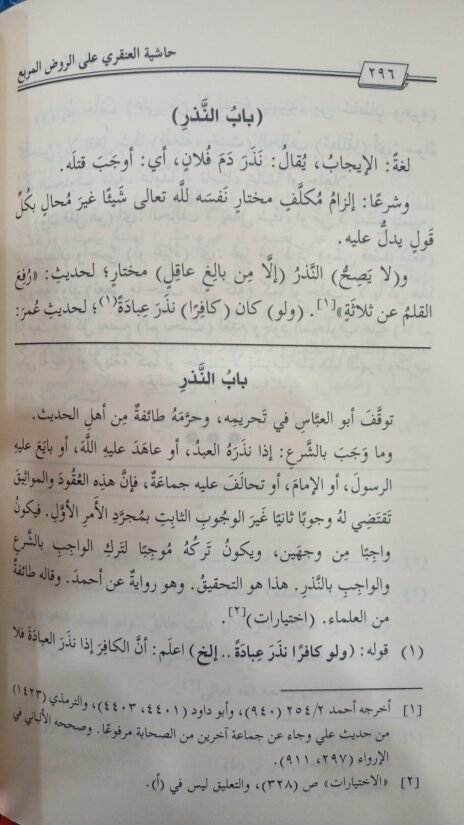 حاشية العنقري على الروض المربع
٢٩٦
(بابُ النَّذرِ)
لغةً: الإيجابُ، يُقالُ: نَذَرَ دَمَ فُلانٍ، أي: أوجَبَ قتلَه.
وشرعًا: إلزامُ مُكلَّفٍ مختارٍ نَفسَه للَّه تعالى شَيئًا غيرَ مُحالٍ بكُلِّ
قولٍ يدلُّ عليه.
و(لا يَصِحُّ) النَّذرُ (إلَّا مِن بالِغٍ عاقِلٍ) مختارٍ؛ لحديثِ: «رُفِعَ
القلمُ عن ثلاثَةٍ»[١]. (ولو) كان (كافِرًا) نذَرَ عِبادَةً(١)؛ لحديثِ عُمرَ:
بابُ النَّذرِ
توقَّفَ أبو العبَّاسِ في تَحريمِه، وحرَّمَهُ طائفةٌ مِن أهلِ الحديث.
وما وَجَبَ بالشَّرعِ: إذا نذَرَهُ العبدُ، أو عاهَدَ عليهِ اللَّهَ، أو بايَعَ عليهِ
الرسولَ، أو الإمامَ، أو تحالَفَ عليه جماعَةٌ، فإنَّ هذِه العُقُودَ والمواثيقَ
تَقتَضِي لهُ وجوبًا ثانيًا غَيرَ الوجوبِ الثابتِ بمُجرَّدِ الأمرِ الأوَّلِ. فيكونُ
واجبًا مِن وجهَين، ويكونُ تَركُهُ مُوجِبًا لتَركِ الواجبِ بالشَّرعِ
والواجبِ بالنَّذرِ. هذا هو التحقيقُ. وهو روايةٌ عن أحمدَ. وقاله طائفةٌ
من العلماء. (اختيارات)[٢].
(١) قوله: (ولو كافرًا نذَرَ عِبادَةً.. إلخ) اعلَم: أنَّ الكافِرَ إذا نذَرَ العبادَةَ فلا
[١] أخرجه أحمد ٢٥٤/٢ (٩٤٠)، وأبو داود (٤٤٠١، ٤٤٠٣)، والترمذي (١٤٢٣)
من حديث علي وجاء عن جماعة آخرين من الصحابة مرفوعًا. وصححه الألباني في
الإرواء (٢٩٧، ٩١١).
[٢] «الاختيارات» ص (٣٢٨)، والتعليق ليس في (أ).